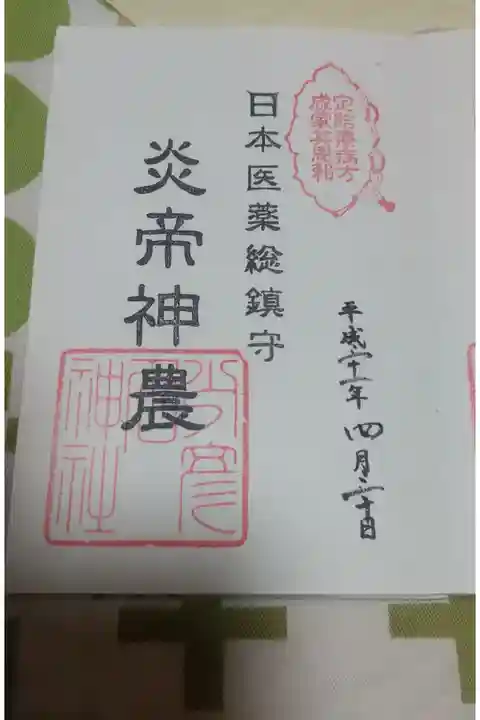 平成二十一年四月二十日
日本医薬総鎮守
炎帝神農
少彦
名
神社